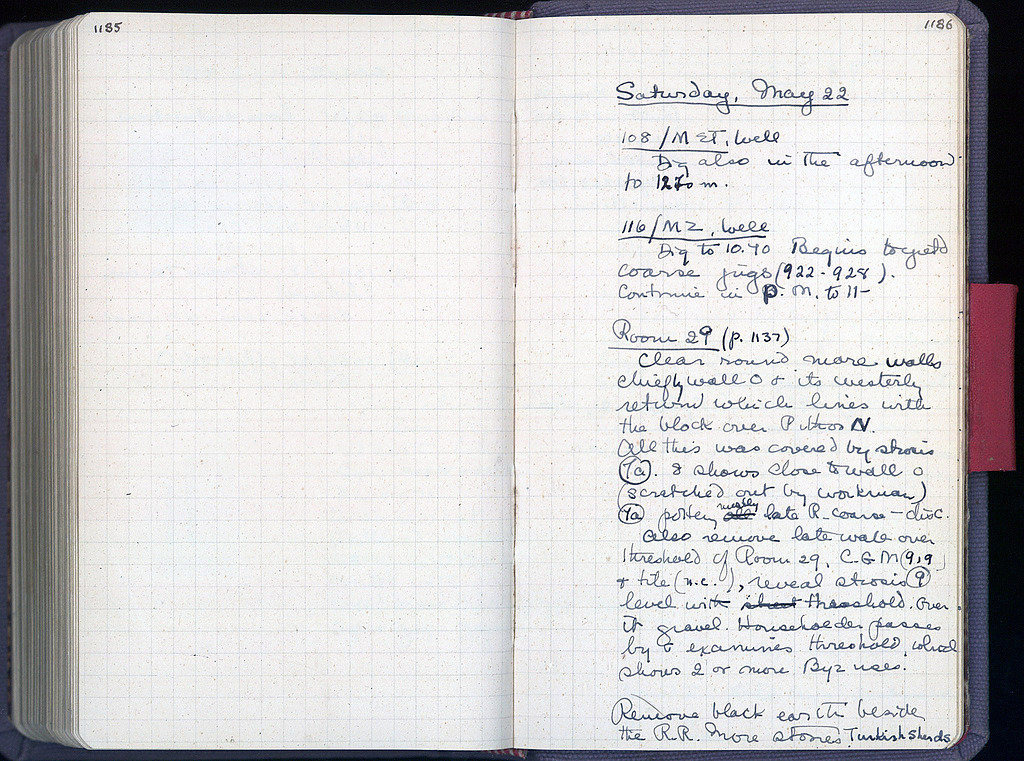 1185
1186
Saturday, May 22
108/M ET, Well
Dig also in the afternoon
to 12.70 m.
116/MZ, Well
Dig to 10.40 Begins to yield
coarse jugs (922-928).
Continue in P.M. to 11-
Room 29 (p. 1137)
Clear round more walls
chiefly wall O & its westerly
return which lines with
the block over Pithos N.
All this was covered by strosis
7a. 8 shows close to wall O
(scratched out by workman)
7a pottery mostly late R. coarse - disc.
Also remove late wall over
threshold of Room 29, C.G.M (919)
& tile (n.c.), reveal strosis 9
level with street threshold. Over
it gravel. Householder passes
by & examines threshold, which
shows 2 or more Byz uses.
Remove black earth beside
the R.R. More stones Turkish sherds